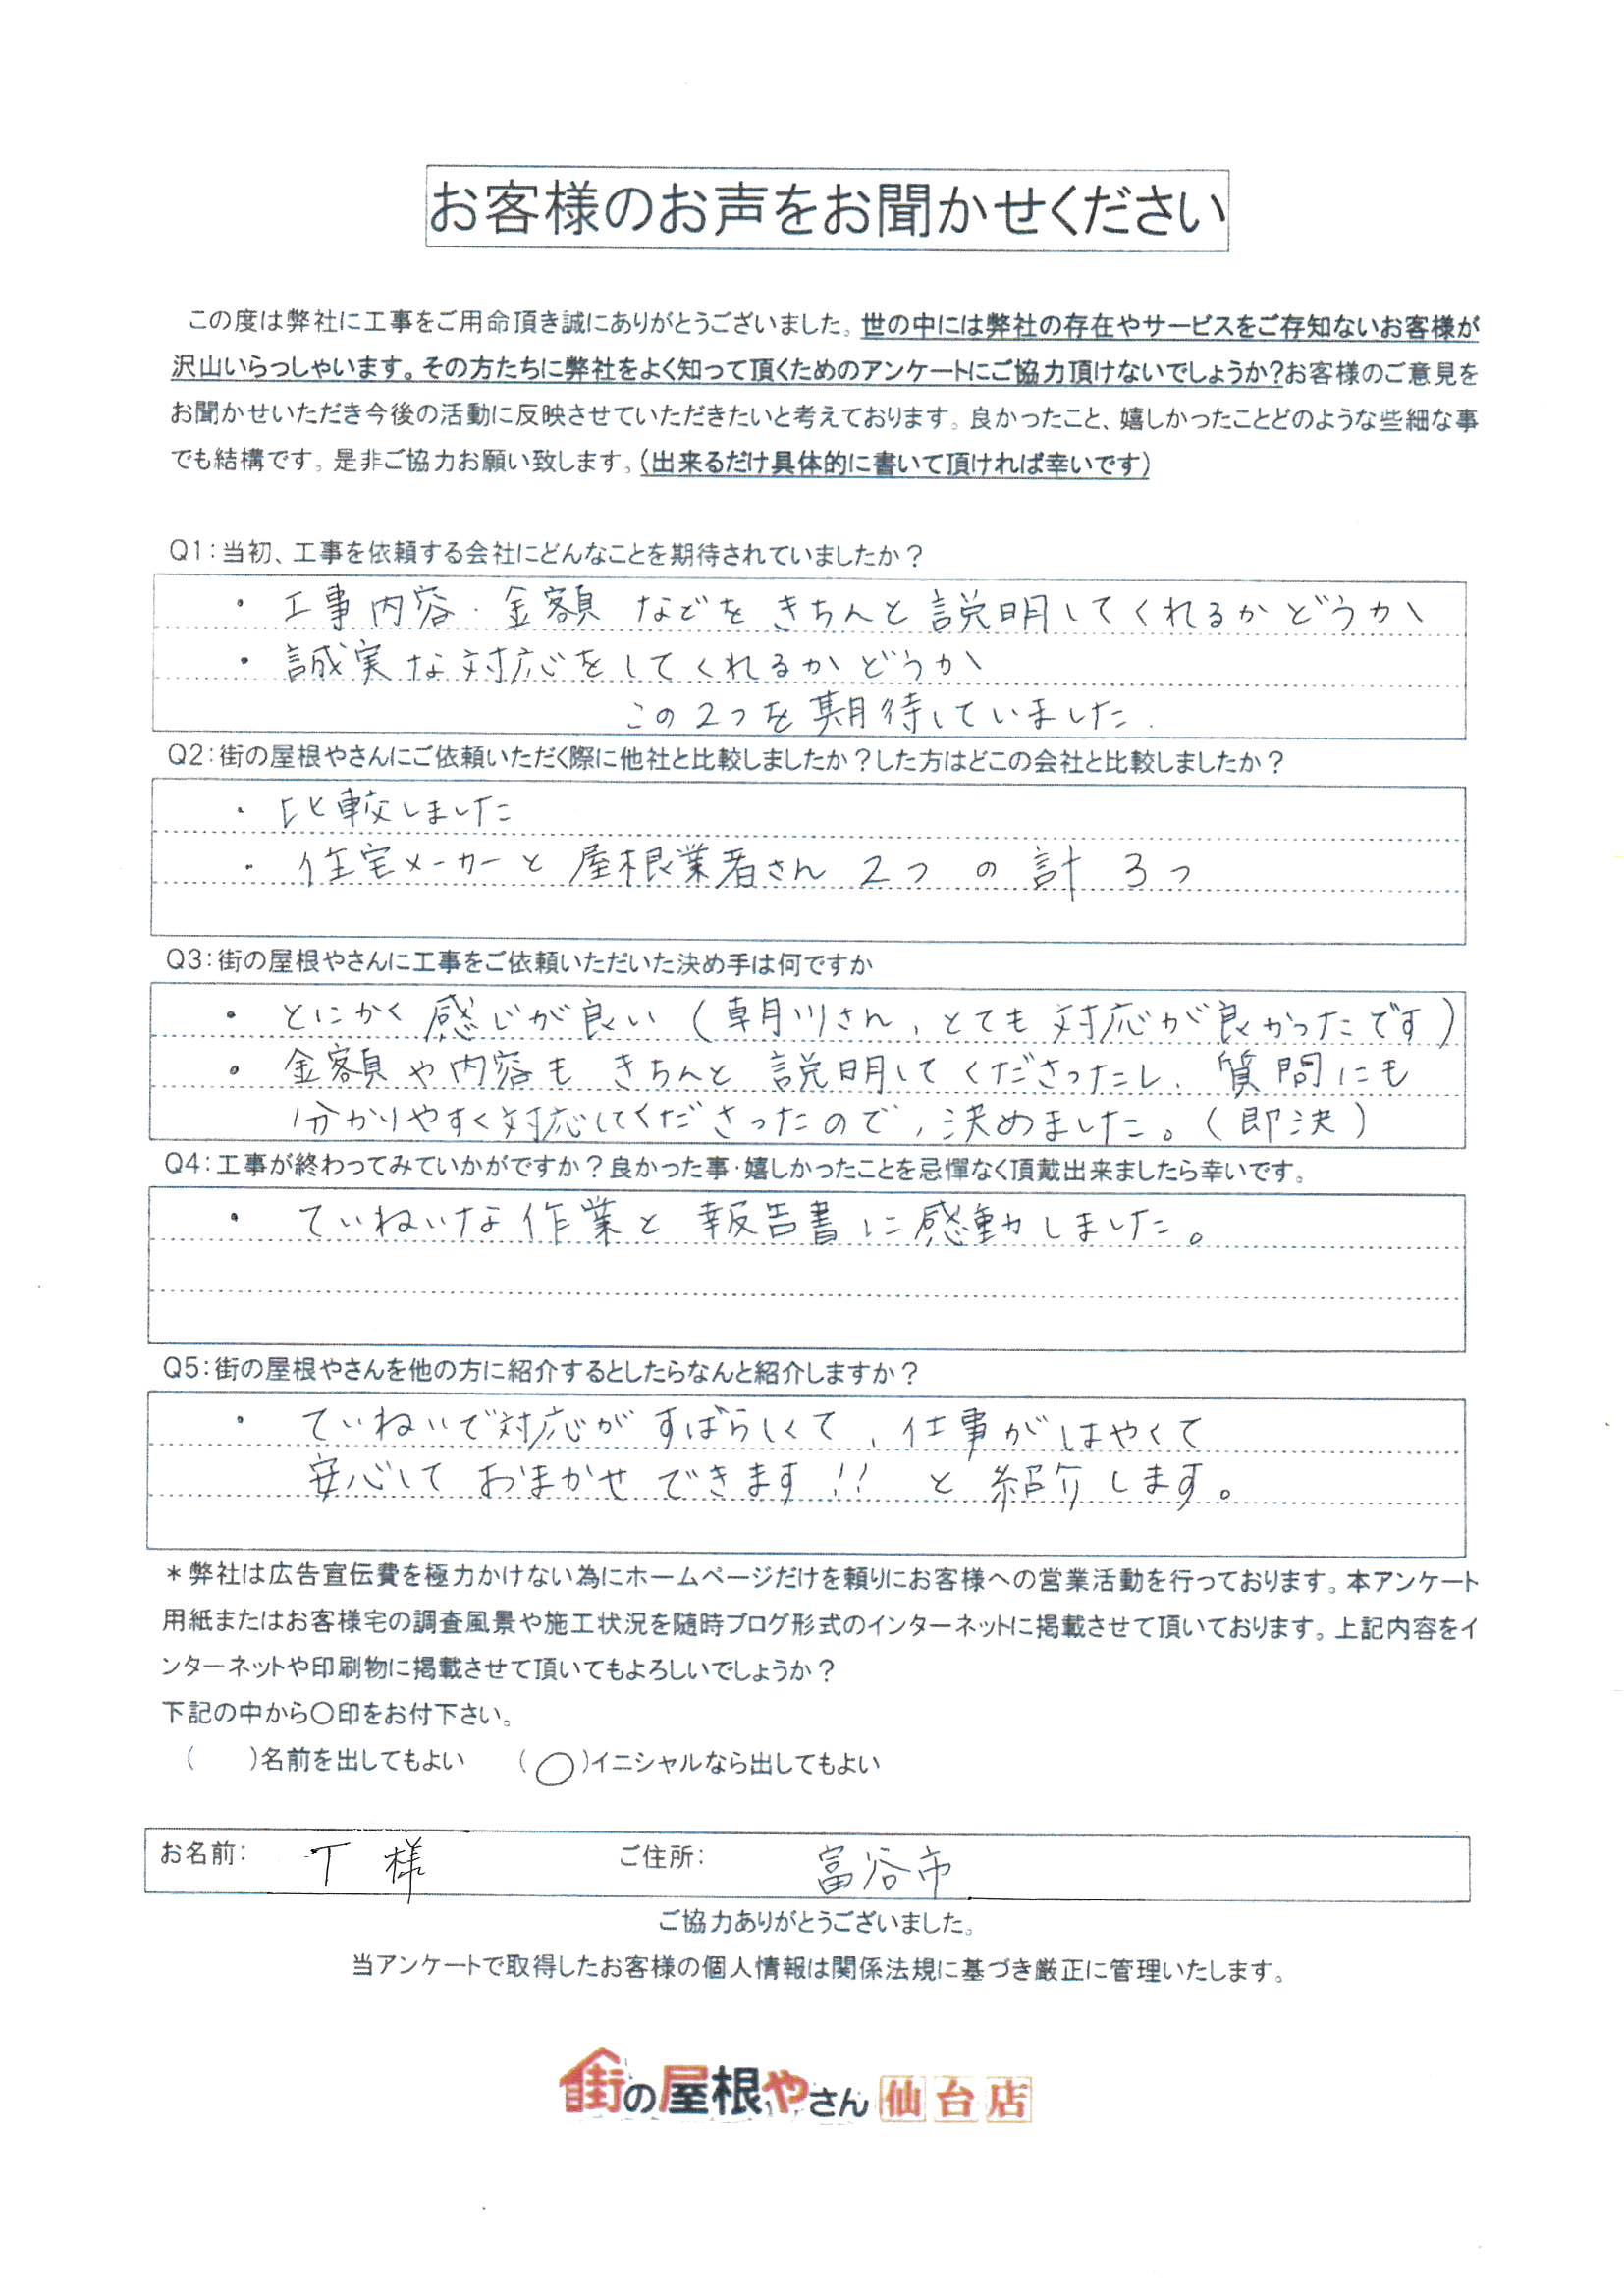 お客様のお声をお聞かせください
この度は弊社に工事をご用命頂き誠にありがとうございました。世の中には弊社の存在やサービスをご存知ないお客様が
沢山いらっしゃいます。その方たちに弊社をよく知って頂くためのアンケートにご協力頂けないでしょうか?お客様のご意見を
お聞かせいただき今後の活動に反映させていただきたいと考えております。良かったこと、嬉しかったことどのような些細な事
でも結構です。是非ご協力お願い致します。(出来るだけ具体的に書いて頂ければ幸いです)
Q1:当初、工事を依頼する会社にどんなことを期待されていましたか?
・工事内容・金額などをきちんと説明してくれるかどうか
・誠実な対応をしてくれるかどうか
この2つを期待していました.
Q2:街の屋根やさんにご依頼いただく際に他社と比較しましたか?した方はどこの会社と比較しましたか?
・比較しました
・住宅メーカーと屋根業者さん2つの計3つ
Q3:街の屋根やさんに工事をご依頼いただいた決め手は何ですか
・とにかく感じが良い(朝川さん、とても対応が良かったです)
・金額や内容もきちんと説明してくださったし、質問にも
分かりやすく対応してくださったので、決めました。(即決)
Q4:工事が終わってみていかがですか?良かった事・嬉しかったことを忌憚なく頂戴出来ましたら幸いです。
・ていねいな作業と報告書に感動しました。
Q5:街の屋根やさんを他の方に紹介するとしたらなんと紹介しますか?
・ていねいで対応がすばらしくて、仕事がはやくて
安心しておまかせできます!!と紹介します。
*弊社は広告宣伝費を極力かけない為にホームページだけを頼りにお客様への営業活動を行っております。本アンケート
用紙またはお客様宅の調査風景や施工状況を随時ブログ形式のインターネットに掲載させて頂いております。上記内容をイ
ンターネットや印刷物に掲載させて頂いてもよろしいでしょうか?
下記の中から○印をお付下さい。
(　　)名前を出してもよい　(○)イニシャルなら出してもよい
お名前: T様　ご住所: 富谷市
ご協力ありがとうございました。
当アンケートで取得したお客様の個人情報は関係法規に基づき厳正に管理いたします。
街の屋根やさん 仙台店